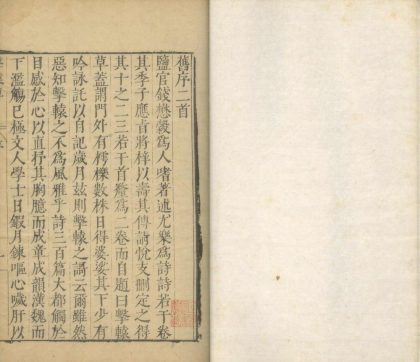 舊序二首
鹽官錢懋穀爲人嗜著述尤樂爲詩詩若干卷
其季子應甫將梓以壽其傳諭悅支刪定之得
其十之二三若干首釐爲一卷而自題曰擊轅
草蓋謂門外有樗櫟數株日得婆娑其下少有
吟詠託以自記歲月茲則擊轅之謌云爾雖然
惡知擊轅之不爲風雅乎詩三百篇大都觸於
目感於心以直抒其胸臆而成章成韻漢魏而
下濫觴已極文人學士日鍜月鍊嘔心嘁肝以